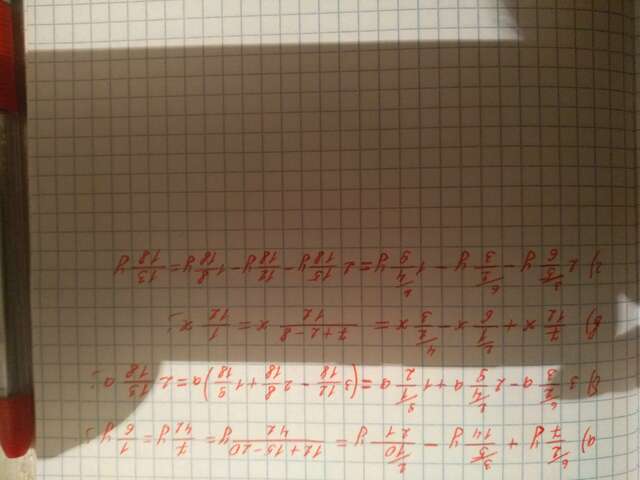 а) 2/7 y + 5/14 y − 10/21 y = (12+15−20)/42 y = 7/42 y = 1/6 y;
б) 3 2/3 a − 2 4/9 a + 1 1/2 a = (3 12/18 − 2 8/18 + 1 9/18) a = 2 13/18 a;
в) 7/12 x + 1/6 x − 2/3 x = (7+2−8)/12 x = 1/12 x;
г) 2 5/6 y − 2/3 y − 1 4/9 y = 2 15/18 y − 12/18 y − 1 8/18 y = 13/18 y